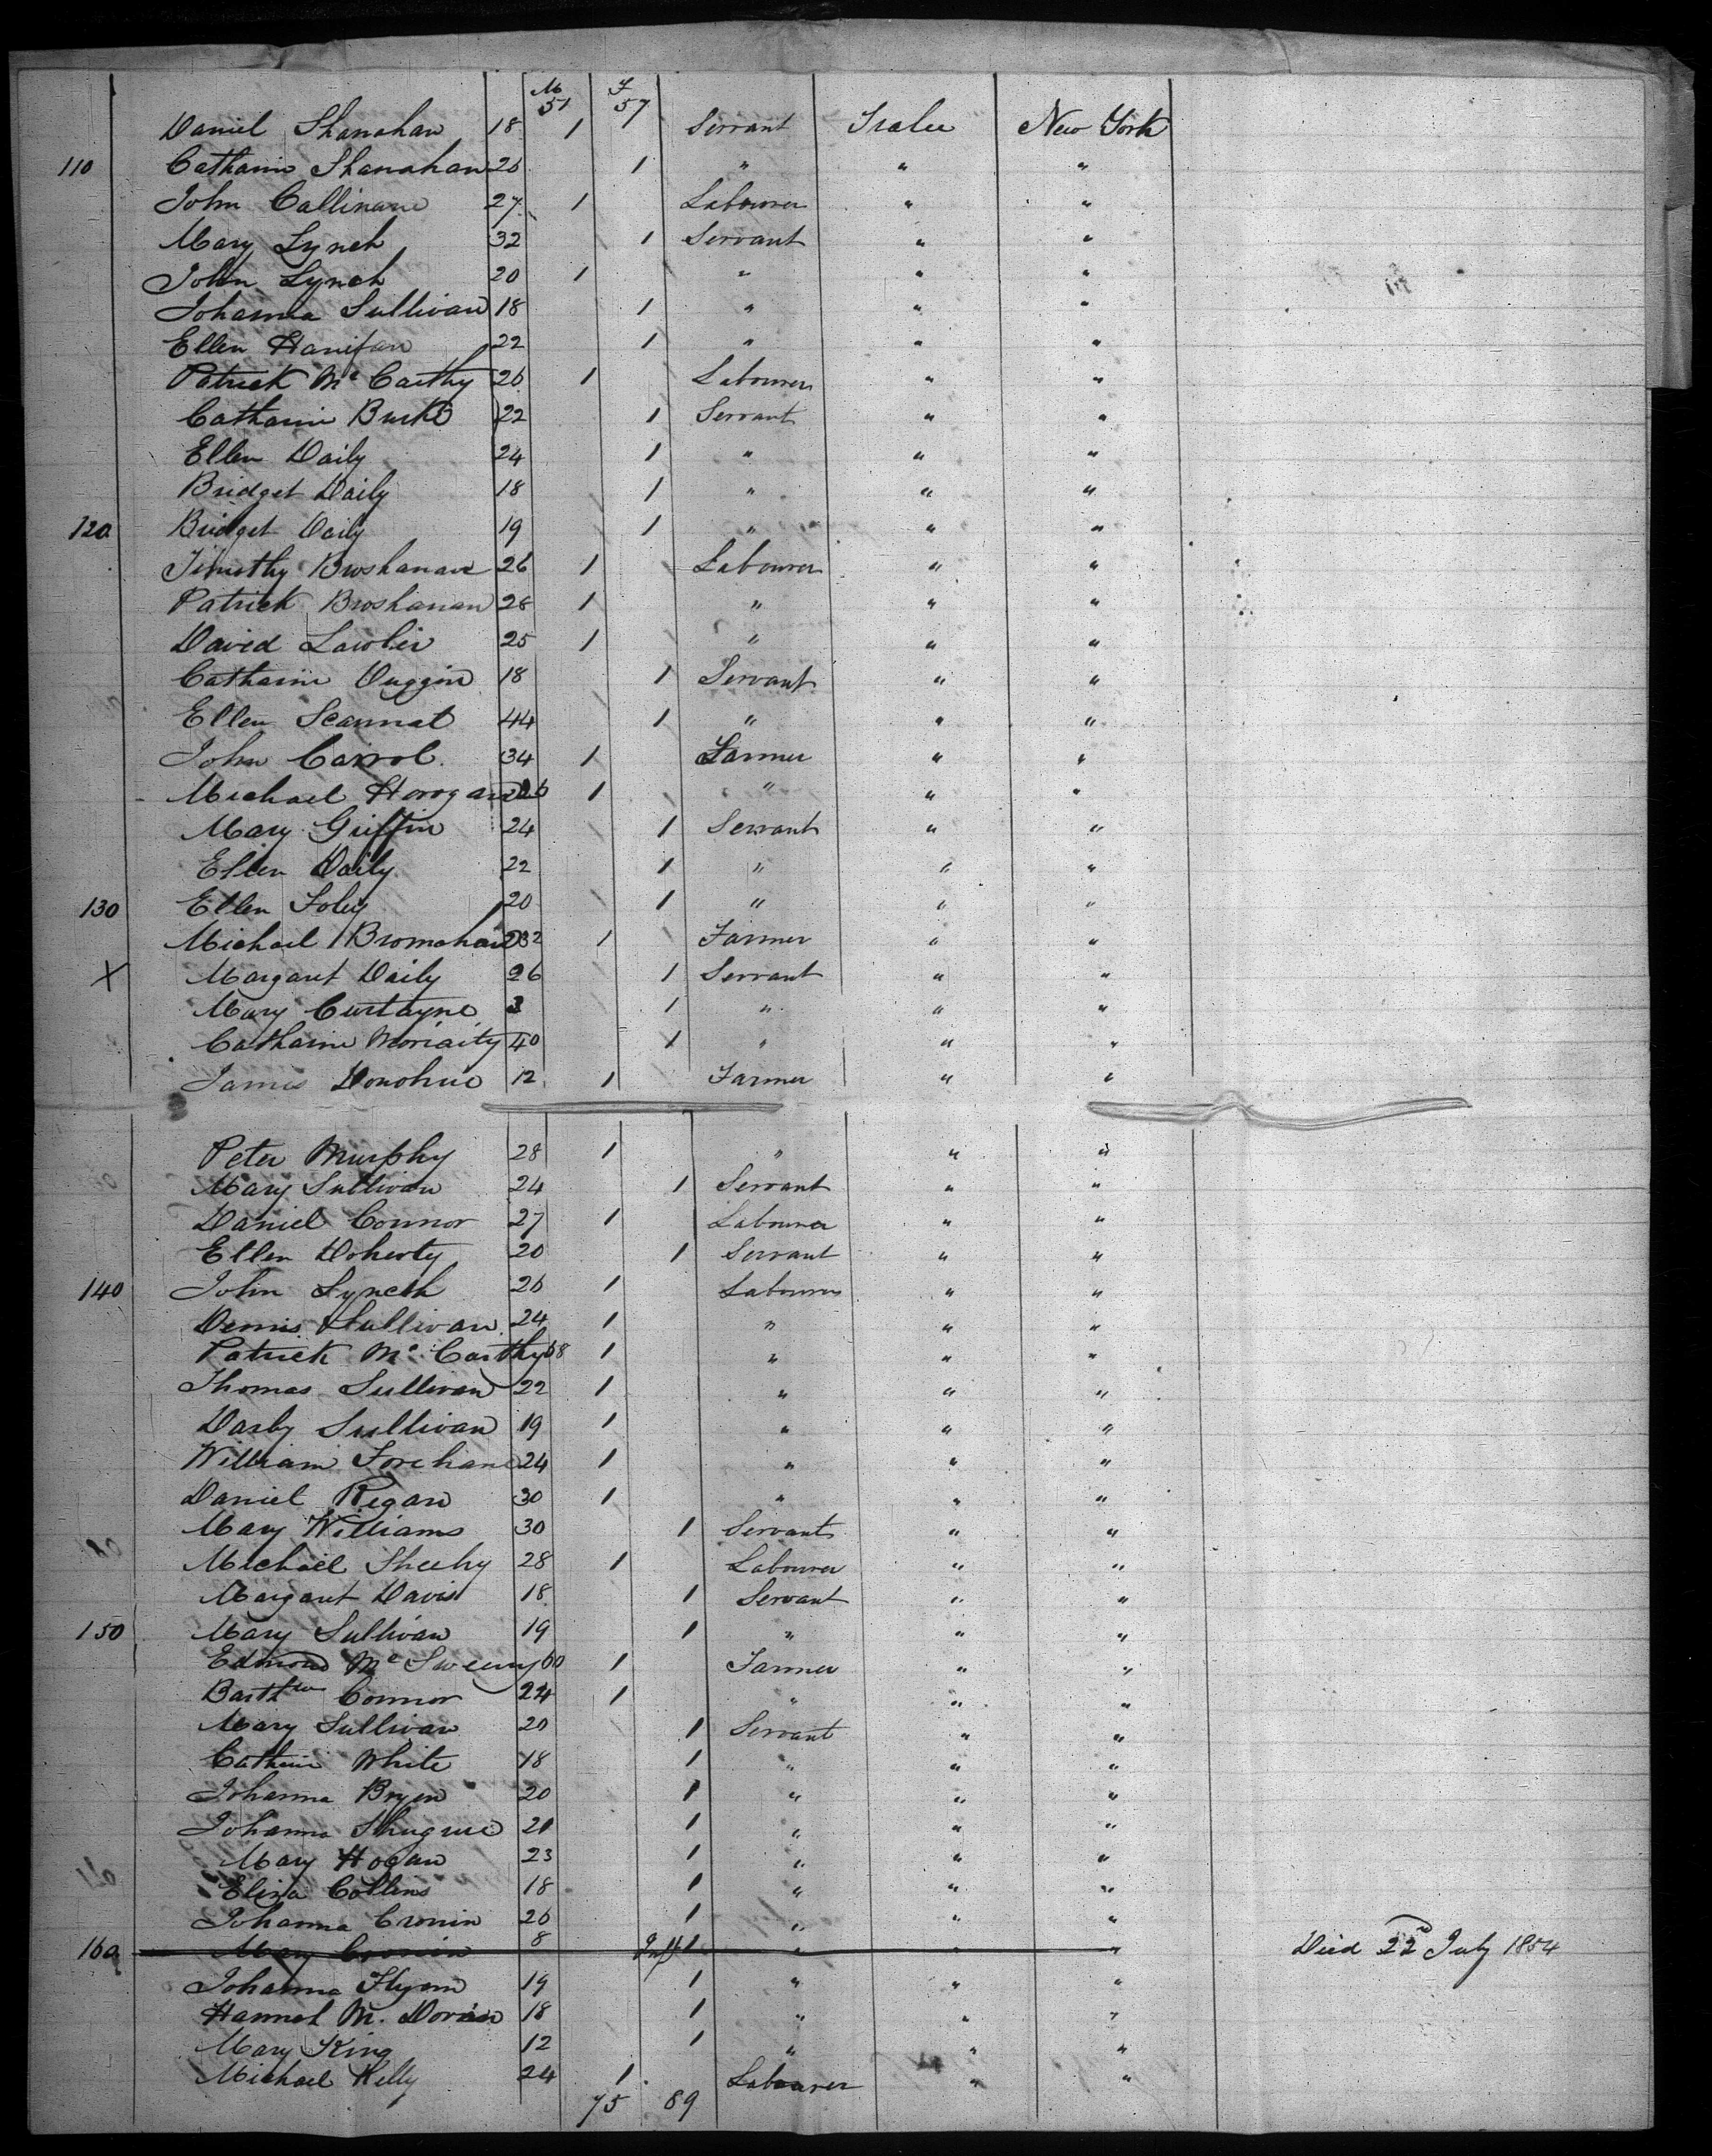 M F
51 57
Daniel Shanahan 18 1 Servant Tralee New York
110 Catharine Shanahan 26 1 " " "
John Callinane 27 1 Labourer " "
Mary Lynch 32 1 Servant " "
John Lynch 20 1 " " "
Johanna Sullivan 18 1 " " "
Ellen Hanifan 22 1 " " "
Patrick Mc Carthy 26 1 Labourer " "
Catharine Burke 22 1 Servant " "
Ellen Daily 24 1 " " "
Bridget Daily 18 1 " " "
120 Bridget Daily 19 1 " " "
Timothy Broshanan 26 1 Labourer " "
Patrick Broshanan 28 1 " " "
David Lawlier 25 1 " " "
Catharine Duggin 18 1 Servant " "
Ellen Scannat 44 1 " " "
John Carrol 34 1 Farmer " "
Michael Horrgan 26 1 " " "
Mary Griffin 24 1 Servant " "
Ellen Daily 22 1 " " "
130 Ellen Foley 20 1 " " "
Michael Bromahan 32 1 Farmer " "
X Margaret Daily 26 1 Servant " "
Mary Curtayne 3 1 " " "
Catharine Moriaity 40 1 " " "
James Donohue 12 1 Farmer " "
Peter Murphy 28 1 " " "
Mary Sullivan 24 1 Servant " "
Daniel Connor 27 1 Labourer " "
Ellen Doherty 20 1 Servant " "
140 John Lynch 26 1 Labourer " "
Dennis Sullivan 24 1 " " "
Patrick Mc Carthy 68 1 " " "
Thomas Sullivan 22 1 " " "
Darby Sullivan 19 1 " " "
William Forehane 24 1 " " "
Daniel Regan 30 1 " " "
Mary Williams 30 1 Servant " "
Michael Sheehy 28 1 Labourer " "
Margaret Davis 18 1 Servant " "
150 Mary Sullivan 19 1 " " "
Edmond Mc Sweeny 60 1 Farmer " "
Barthw Connor 24 1 " " "
Mary Sullivan 20 1 Servant " "
Catherine White 18 1 " " "
Johanna Bryen 20 1 " " "
Johanna Shugrue 21 1 " " "
Mary Hogan 23 1 " " "
Eliza Collins 18 1 " " "
Johanna Cronin 26 1 " " "
160 Mary Cronin 8 Inft 1 " " " Died 22nd July 1854
Johanna Flynn 19 1 " " "
Hannah M. Doran 18 1 " " "
Mary King 12 1 " " "
Michael Kelly 24 1 Labourer " "
75 89